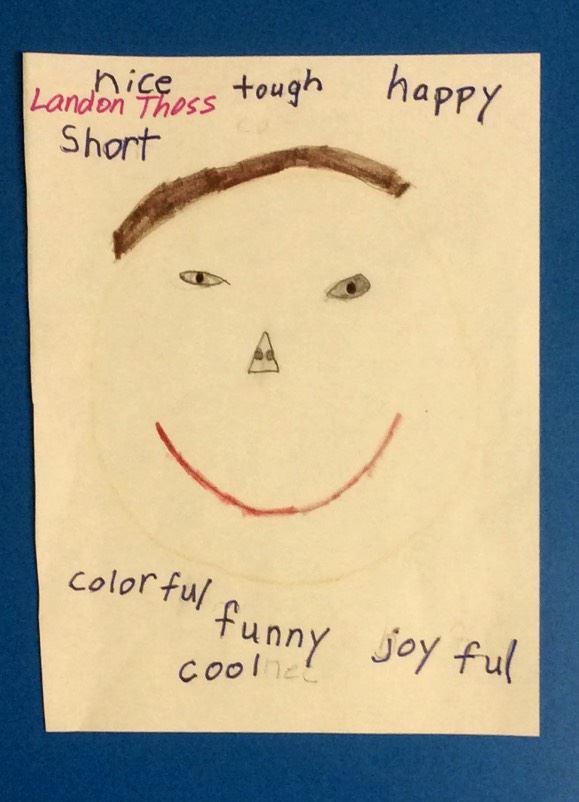 nice tough happy
Landon Thoss
Short
colorful
funny
joy ful
cool